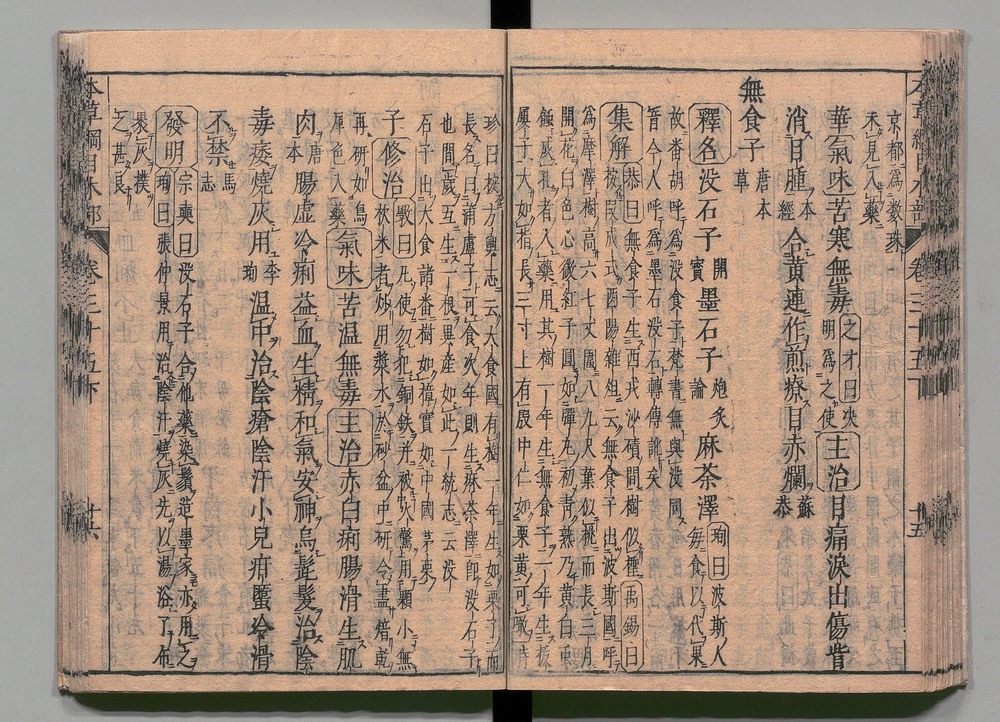 京都爲数珠
未見入藥
華氣味苦寒無毒之才曰決明爲之使主治目痛淚出傷眥
消目腫本經合黄連作煎療目赤爛蘇恭
無食子唐本草
釋名没石子開寶墨石子炮炙論麻荼澤珣曰波斯人毎食以代果
故番胡呼爲没食子梵書無與没同
今人呼爲墨石没石轉傳訛矣
集解恭曰無食子生西戎沙磧間樹似檉禹錫曰
按段成式酉陽雜俎云無食子出波斯國呼
爲摩澤樹高六七丈圍八九尺葉似桃而長三月
開花白色心微紅子圓如彈丸初青熟乃黄白虫
蝕成孔者入藥用其樹一年生無食子一年生
屢子大如指長三寸上有殻中仁如栗黄可噉時
珍曰按方輿志云大食國有樹一年生如栗子而
長名曰蒲盧子可食次年則生麻荼澤即没石子
也間歳互生一根異産如此一統志云没
石子出大食諸番樹如樟實如中國茅栗
子修治斅曰凡使勿犯銅鉄并被火驚用顆小無
枕米者妙用漿水於砂盆中研令盡焙乾
再研如烏犀色入藥氣味苦温無毒主治赤白痢腸滑生肌
肉唐本腸虚冷痢益血生精和氣安神烏髭髮治陰
毒痿燒灰用李珣温中治陰瘡陰汗小兒疳䘌冷滑
不禁馬志
發明宗奭曰没石子合他藥染鬚造墨家亦用之
珣曰張仲景用治陰汗燒灰先以湯浴了布
裹灰撲
之甚良
本草綱目木部 卷三十五下 十五
本草綱目木部 卷三十五下 十六